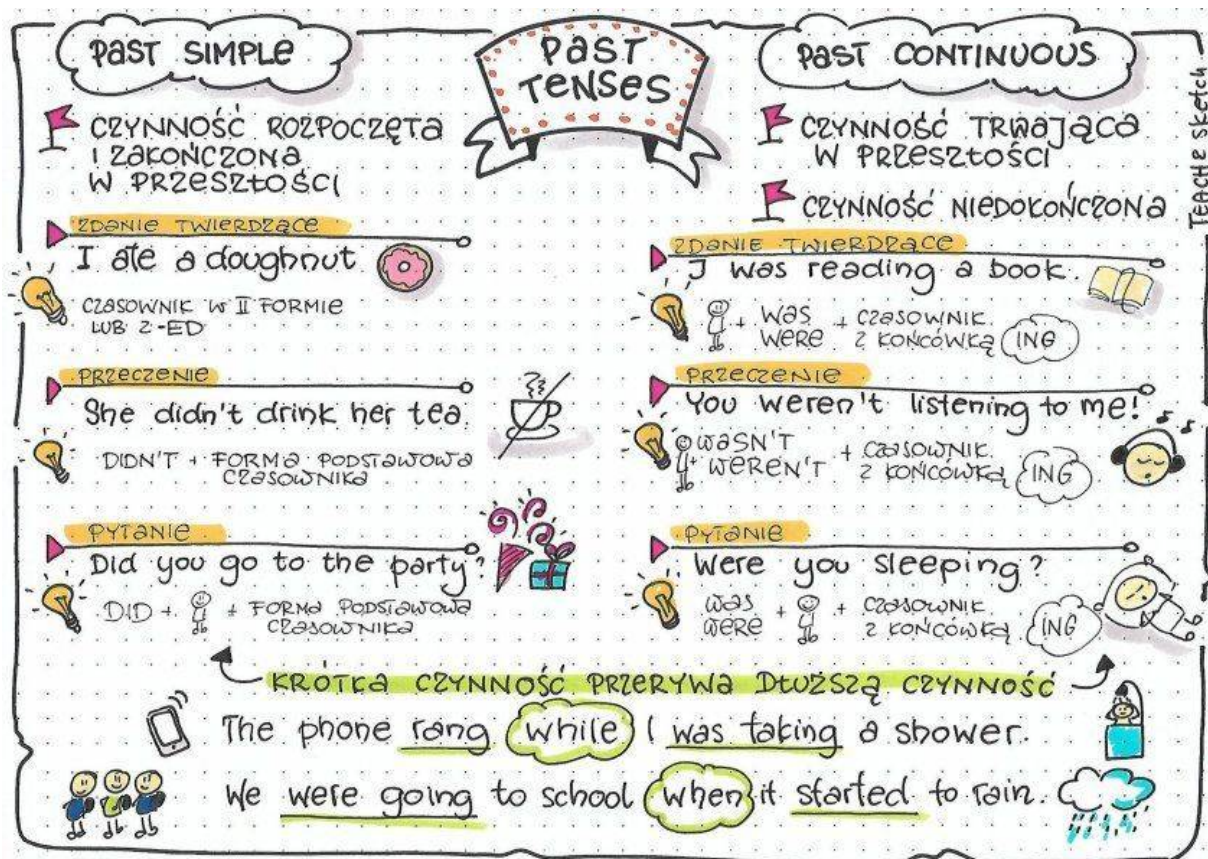 PAST SIMPLE
PAST
TENSES
PAST CONTINUOUS
TEACHE SKETCH
CZYNNOŚĆ ROZPOCZĘTA
I ZAKOŃCZONA
W PRZESZŁOŚCI
ZDANIE TWIERDZĄCE
I ate a doughnut
CZASOWNIK W II FORMIE
LUB Z -ED
PRZECZENIE
She didn't drink her tea
DIDN'T + FORMA PODSTAWOWA
CZASOWNIKA
PYTANIE
Did you go to the party?
DID + + FORMA PODSTAWOWA
CZASOWNIKA
CZYNNOŚĆ TRWAJĄCA
W PRZESZŁOŚCI
CZYNNOŚĆ NIEDOKOŃCZONA
ZDANIE TWIERDZĄCE
I was reading a book.
+ WAS + CZASOWNIK
WERE Z KOŃCÓWKĄ ING
PRZECZENIE
You weren't listening to me!
WASN'T + CZASOWNIK
+ WEREN'T Z KOŃCÓWKĄ ING
PYTANIE
Were you sleeping?
WAS + + CZASOWNIK
WERE Z KOŃCÓWKĄ ING
KRÓTKA CZYNNOŚĆ PRZERYWA DŁUŻSZĄ CZYNNOŚĆ
The phone rang while I was taking a shower.
We were going to school when it started to rain.